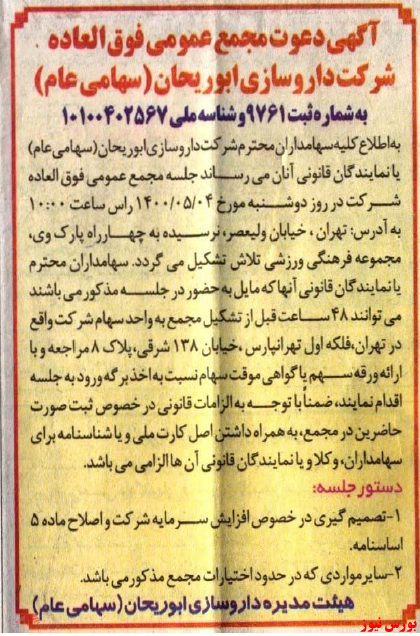 آگهی دعوت مجمع عمومی فوق العاده
شرکت داروسازی ابوریحان (سهامی عام)
به شماره ثبت ۹۷۶۱ و شناسه ملی ۱۰۱۰۰۴۰۲۵۶۷
به اطلاع کلیه سهامداران محترم شرکت داروسازی ابوریحان (سهامی عام)
یا نمایندگان قانونی آنان می رساند جلسه مجمع عمومی فوق العاده
شرکت در روز دوشنبه مورخ ۱۴۰۰/۰۵/۰۴ راس ساعت ۱۰:۰۰
به آدرس: تهران ، خیابان ولیعصر، نرسیده به چهارراه پارک وی،
مجموعه فرهنگی ورزشی تلاش تشکیل می گردد. سهامداران محترم
یا نمایندگان قانونی آنها که مایل به حضور در جلسه مذکور می باشند
می توانند ۴۸ ساعت قبل از تشکیل مجمع به واحد سهام شرکت واقع
در تهران، فلکه اول تهرانپارس ، خیابان ۱۳۸ شرقی، پلاک ۸ مراجعه و با
ارائه ورقه سهم یا گواهی موقت سهام نسبت به اخذ برگه ورود به جلسه
اقدام نمایند، ضمناً با توجه به الزامات قانونی در خصوص ثبت صورت
حاضرین در مجمع، به همراه داشتن اصل کارت ملی و یا شناسنامه برای
سهامداران، وکلا و یا نمایندگان قانونی آن ها الزامی می باشد.
دستور جلسه:
۱-تصمیم گیری در خصوص افزایش سرمایه شرکت و اصلاح ماده ۵
اساسنامه.
۲-سایر مواردی که در حدود اختیارات مجمع مذکور می باشد.
هیئت مدیره داروسازی ابوریحان (سهامی عام)
بورس نیوز